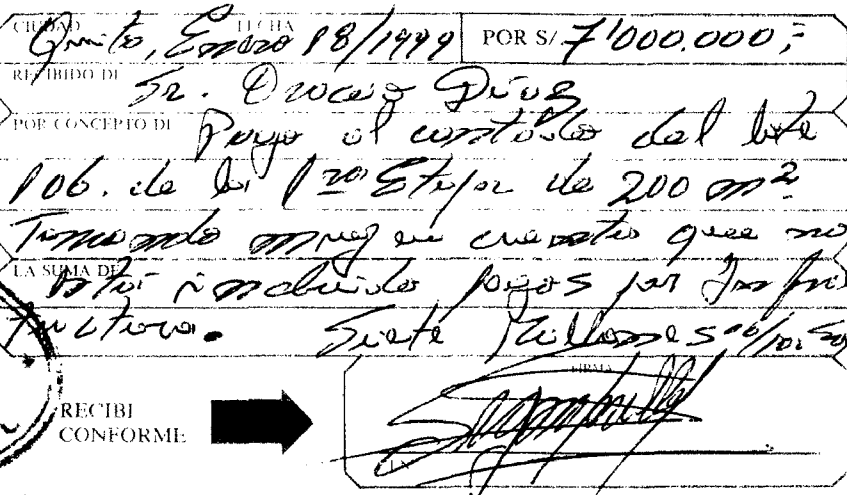 CIUDAD FECHA
Quito, Enero 18/1999 POR S/ 7'000.000,=
RECIBIDO DE
Sr. Díaz
POR CONCEPTO DE Pago al contado del lote
106. de la 1ra Etapa de 200 m²
Tomando muy en cuenta que no
LA SUMA DE
están incluido pagos por Infraes
tructura. Siete Millones 00/100 
FIRMA
RECIBI
CONFORME